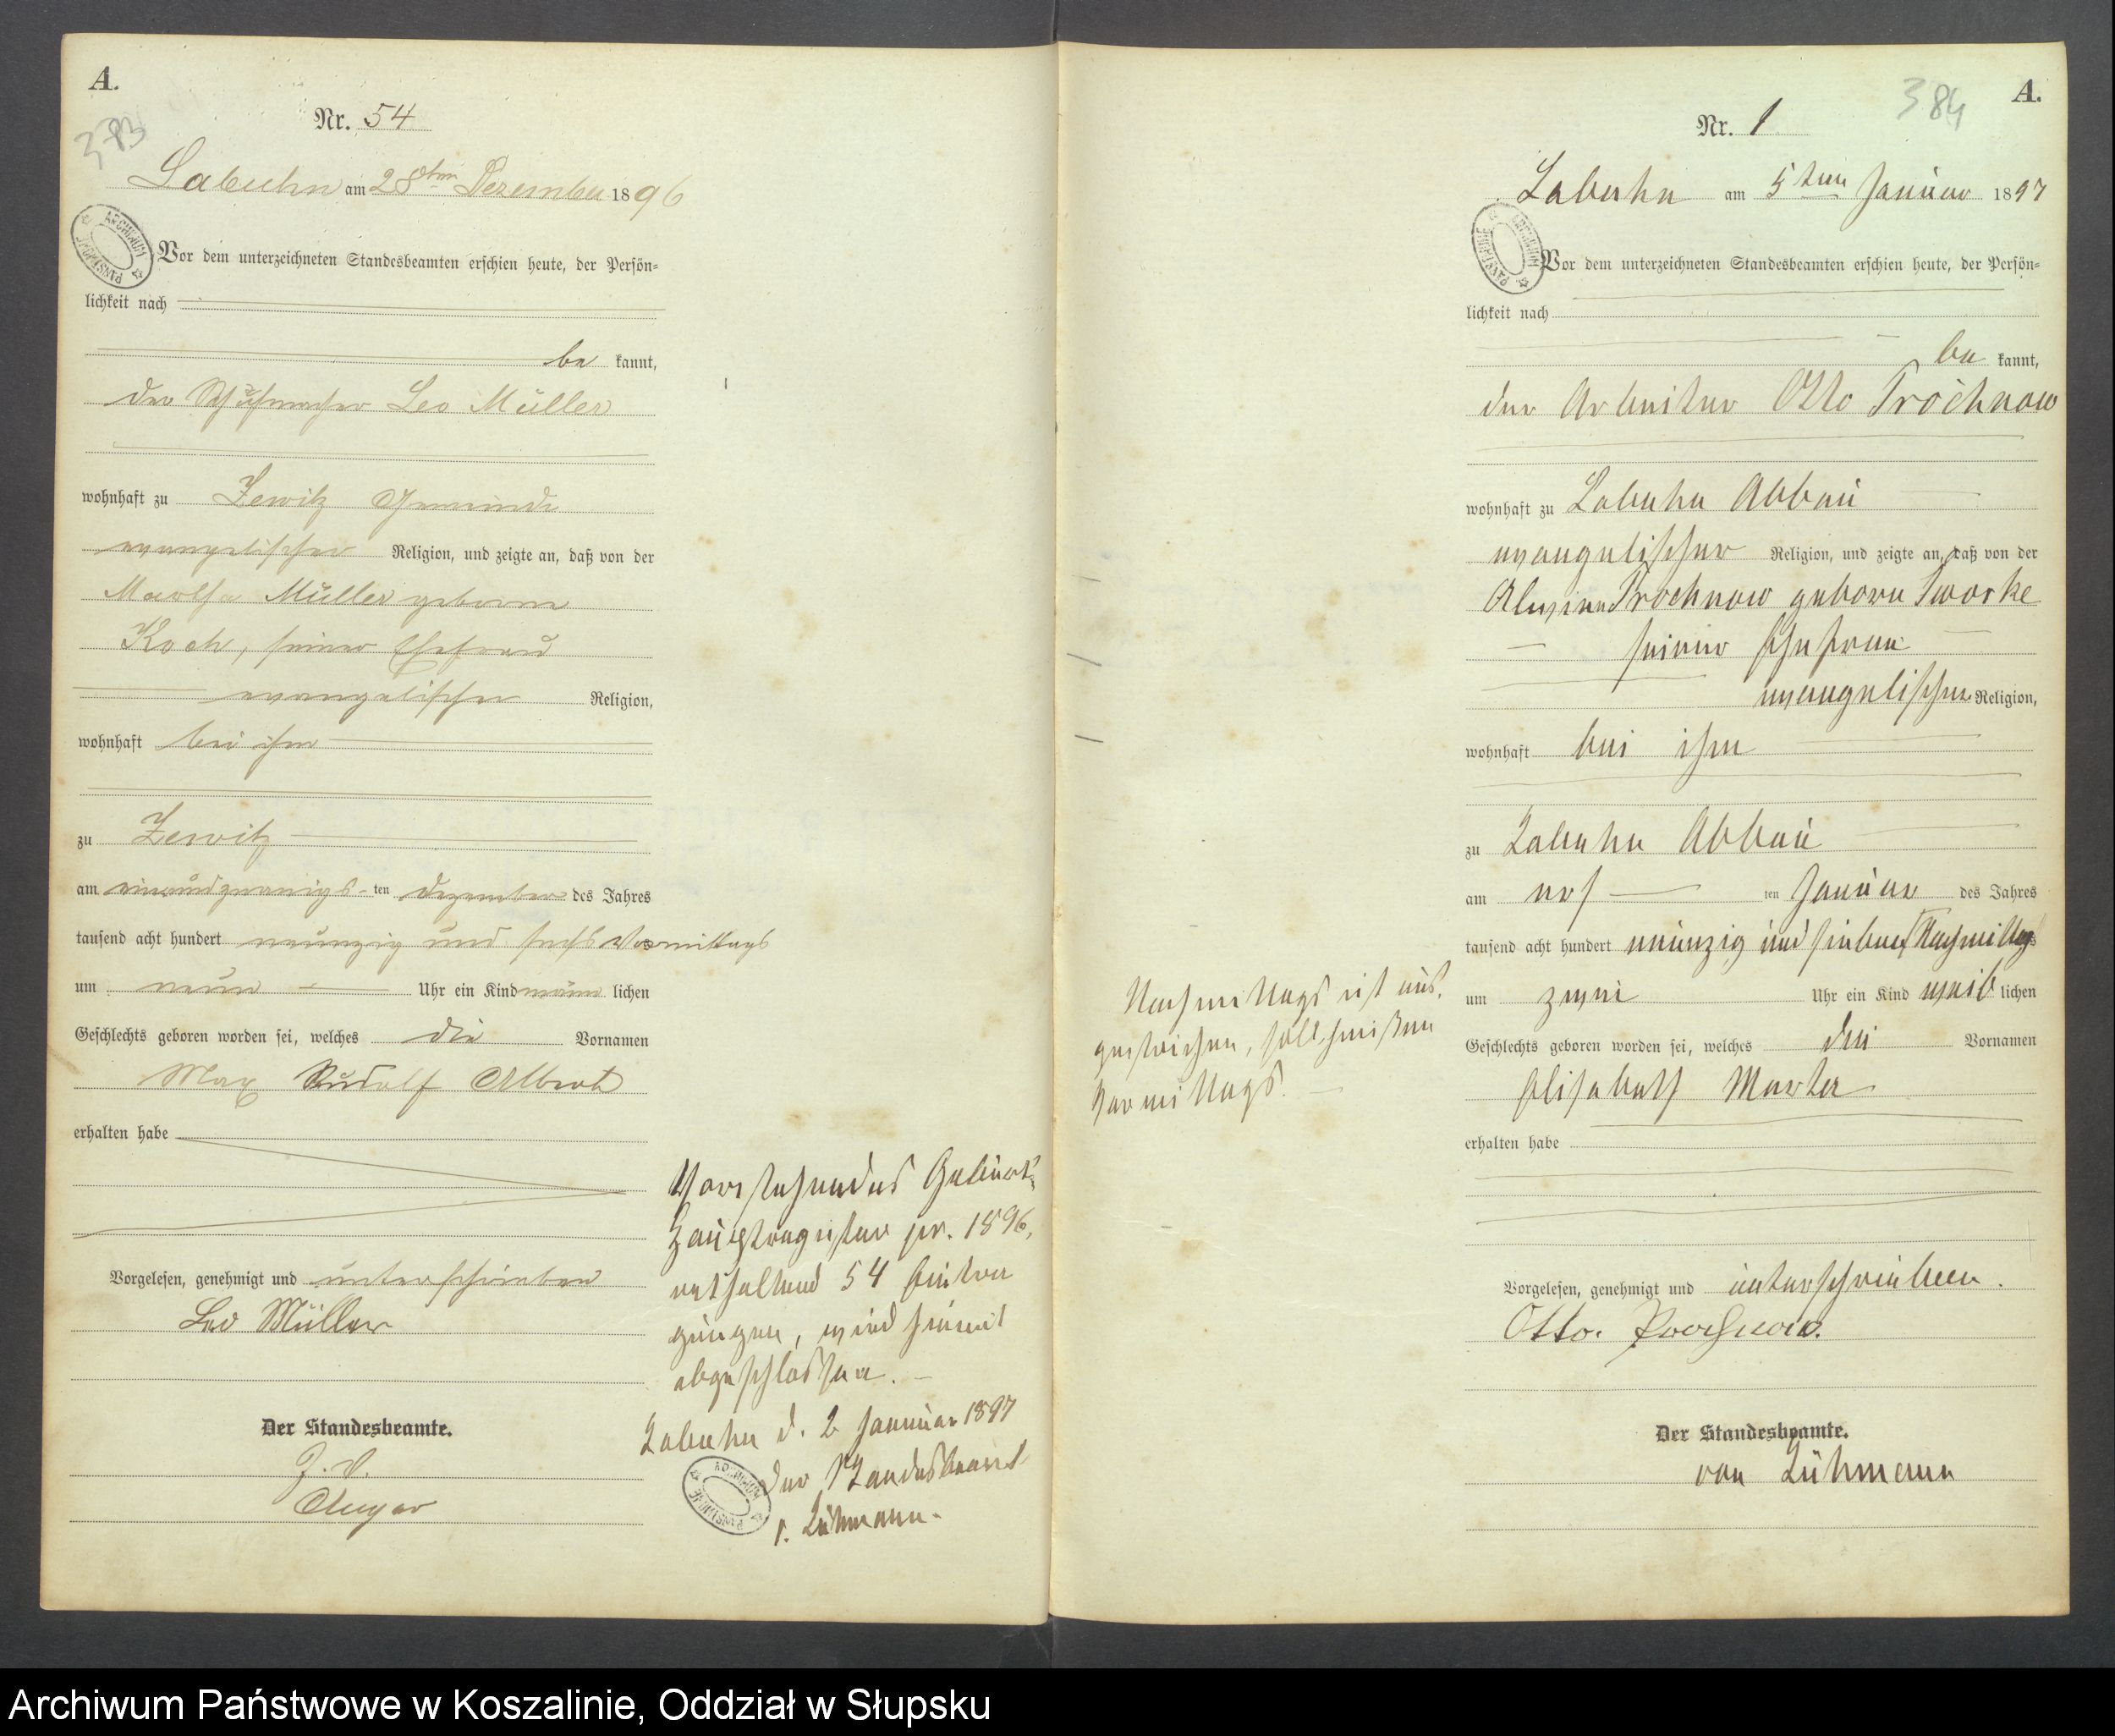 A.
383
Nr. 54
Labuhn am 28ten Dezember 1896
Vor dem unterzeichneten Standesbeamten erschien heute, der Persön-
lichkeit nach
be kannt,
der Schuhmacher Leo Müller
wohnhaft zu Zewitz Gemeinde
evangelischer Religion, und zeigte an, daß von der
Martha Müller geborne
Koch, seiner Ehefrau
evangelischer Religion,
wohnhaft bei ihm
zu Zewitz
am einundzwanzigs-ten Dezember des Jahres
tausend acht hundert neunzig und sechs Vormittags
um neun Uhr ein Kind männ lichen
Geschlechts geboren worden sei, welches die Vornamen
Max Rudolf Albert
erhalten habe
Vorgelesen, genehmigt und unterschrieben
Leo Müller
Der Standesbeamte.
J. V.
Vorstehendes Geburts-
Hauptregister pr. 1896,
enthaltend 54 Eintra
gungen, wird hiermit
abgeschlossen.
Labuhn d. 2 Januar 1897
Der Standesbeamt
v. Lühmann.
ARCHIWUM PAŃSTWOWE
A.
384
Nr. 1
Labuhn am 5ten Januar 1897
Vor dem unterzeichneten Standesbeamten erschien heute, der Persön-
lichkeit nach
be kannt,
der Arbeiter Otto Prochnow
wohnhaft zu Labuhn Abbau
evangelischer Religion, und zeigte an, daß von der
Prochnow geborne
seiner Ehefrau
evangelischer Religion,
wohnhaft bei ihm
zu Labuhn Abbau
am ers ten Januar des Jahres
tausend acht hundert neunzig und sieben Nachmittags
um zwei Uhr ein Kind weib lichen
Geschlechts geboren worden sei, welches die Vornamen
Elisabeth Martha
erhalten habe
Nachmittags ist aus-
gestrichen, soll heißen
Vormittags.
Vorgelesen, genehmigt und unterschrieben.
Otto. Prochnow.
Der Standesbeamte.
von Lühmann
Archiwum Państwowe w Koszalinie, Oddział w Słupsku